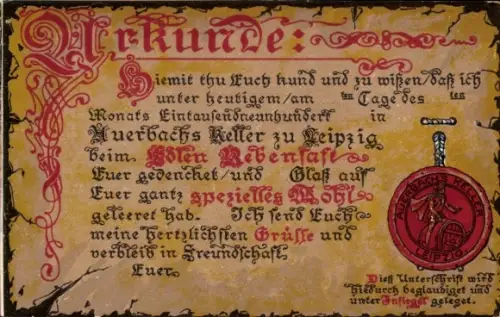 Urkunde:
Hiemit thu Euch kund und zu wißen/daß ich
unter heutigem/am ten Tage des ten
Monats Eintausendneunhundert in
Auerbachs Keller zu Leipzig
beim Edlen Rebensaft
Euer gedencket/und Glaß auf
Euer gantz spezielles Wohl
geleeret hab. Ich send Euch
meine hertzlichsten Grüsse und
verbleib in Freundschaft
Euer
AUERBACHS KELLER
LEIPZIG
Dieß Unterschrift wird
hiedurch beglaubiget und
unter Insiegel geleget.